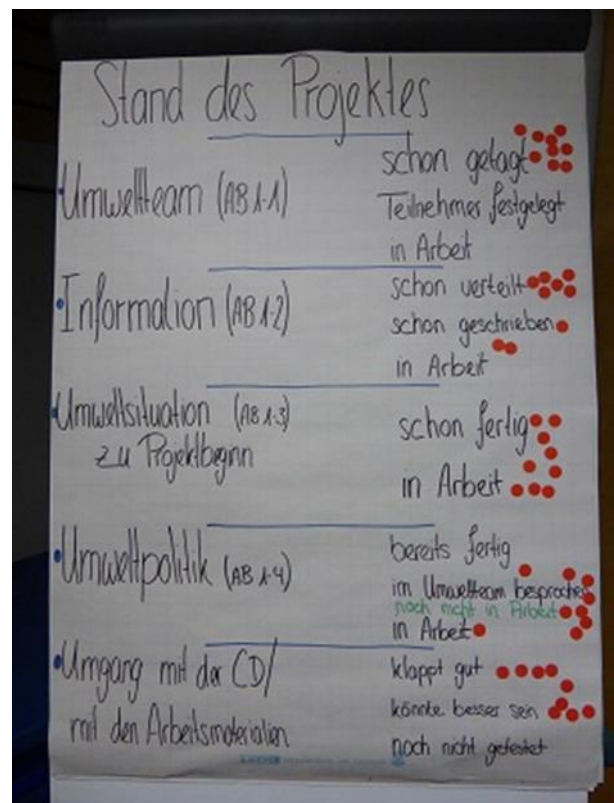 Stand des Projektes
Umweltteam (AB 1-1)
schon getagt
Teilnehmer festgelegt
in Arbeit
Information (AB 1-2)
schon verteilt
schon geschrieben
in Arbeit
Umweltsituation (AB 1-3)
zu Projektbeginn
schon fertig
in Arbeit
Umweltpolitik (AB 1-4)
bereits fertig
im Umweltteam besprochen
noch nicht in Arbeit
in Arbeit
Umgang mit der CD/
mit den Arbeitsmaterialien
klappt gut
könnte besser sein
noch nicht getestet